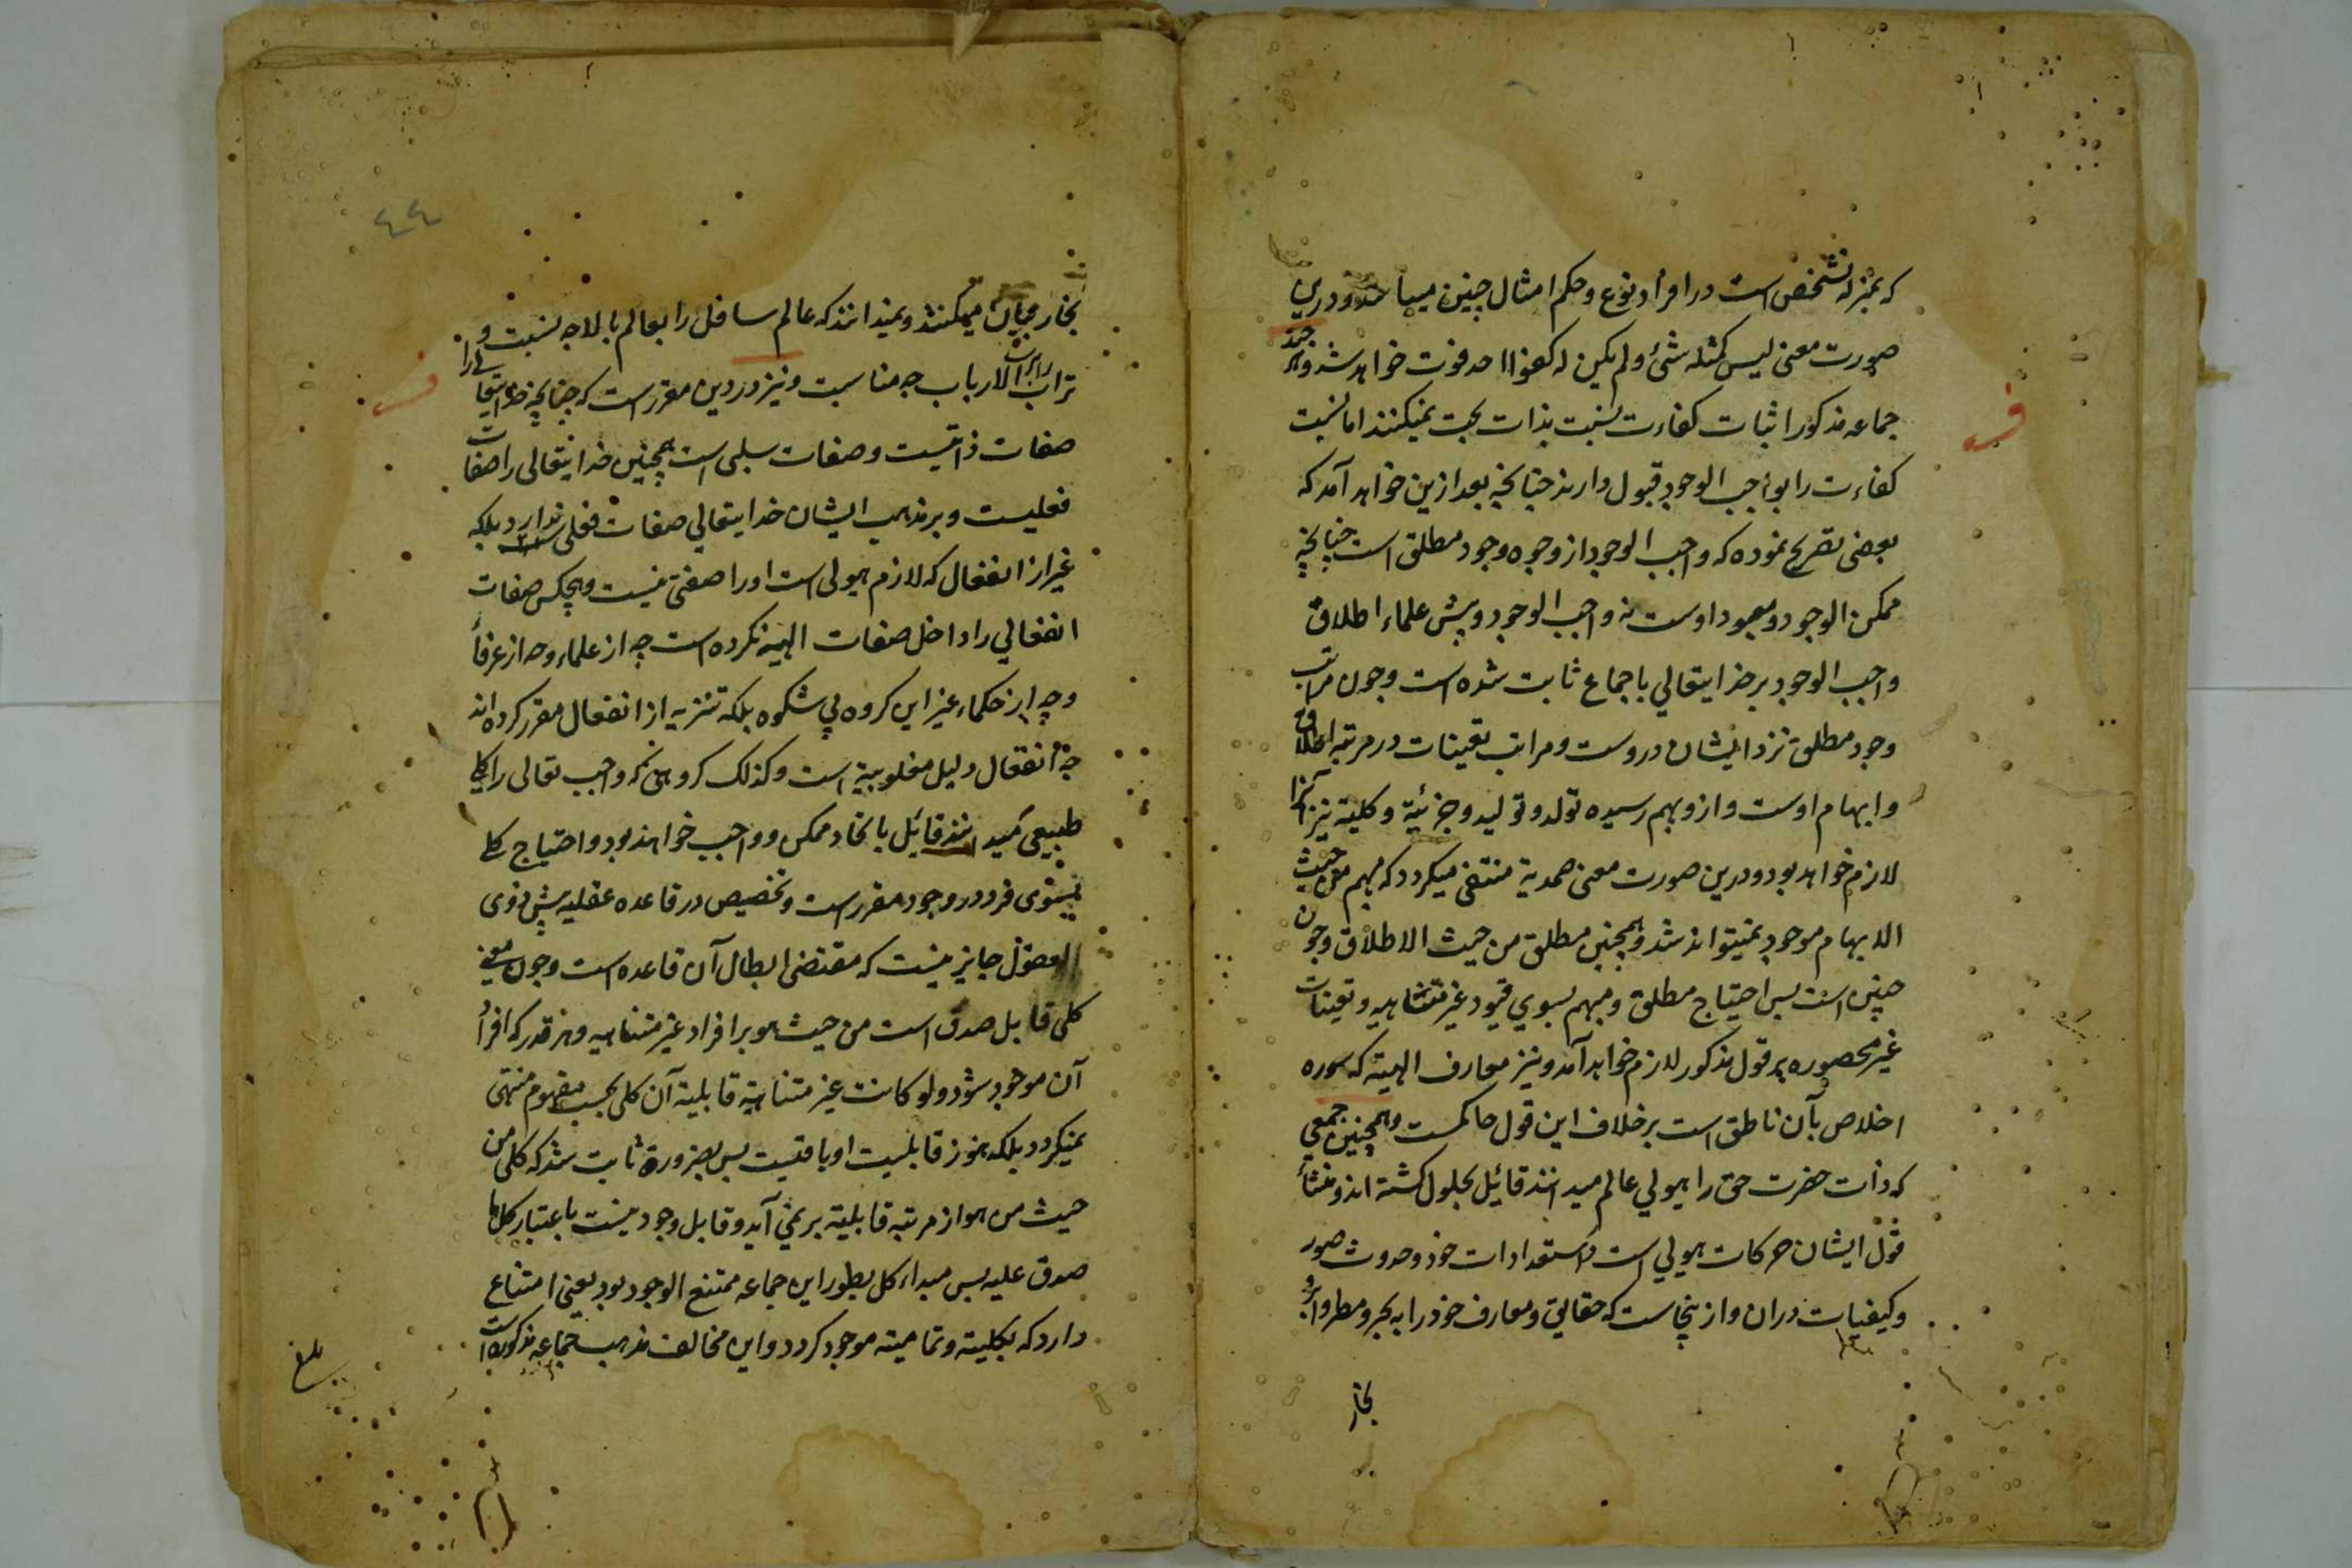 که بمنزله تشخص است در افراد نوع و حکم امثال چنین میباشد و درین
صورت معنی لیس کمثله شئ ولم یکن له کفوا احد فوت خواهد شد و هر چند
جماعه مذکور اثبات کفاءت نسبت بذات بحت نمیکنند اما نسبت
کفاءت را بواجب الوجود قبول دارند چنانچه بعد ازین خواهد آمد که
بعضی تصریح نموده که واجب الوجود از وجوه وجود مطلق است چنانچه
ممکن الوجود و معبود اوست نه واجب الوجود و پیش علماء اطلاق
واجب الوجود بر خدایتعالی باجماع ثابت شده است و چون مراتب
وجود مطلق نزد ایشان دروست و مراتب تعینات در مرتبه اطلاق
و ابهام اوست و ازو بهم رسیده تولد و تولید و جزئیة و کلیة نیز آنرا
لازم خواهد بود و درین صورت معنی صمدیة منتفی میکردد که مبهم من حیث
الابهام موجود نمیتواند شد و همچنین مطلق من حیث الاطلاق و چون
چنین است بس احتیاج مطلق و مبهم بسوی قیود غیر متناهیه و تعینات
غیر محصوره بر قول مذکور لازم خواهد آمد و نیز معارف الهیته که سوره
اخلاص بآن ناطق است بر خلاف این قول حاکمست و همچنین جمعی
که ذات حضرت حق را هیولی عالم میدانند قائل بحلول کشته اند و منشأ
قول ایشان حرکات هیولی است و استعدادات خود و حدوث صور
و کیفیات دران و از ینجاست که حقایق و معارف خود را به بحر و مطر و ابر
بخار
٤٤
بخار بیان میکنند و نمیدانند که عالم سافل را بعالم بالا چه نسبت و
تراب را برب الارباب چه مناسبت و نیز در دین مقرر است که چنانچه خدایتعالی را
صفات ذاتیست و صفات سلبی است همچنین خدایتعالی را صفات
فعلیست و بر مذهب ایشان خدایتعالی صفات فعلی ندارد بلکه
غیر از انفعال که لازم هیولی است او را صفتی نیست و هیچکس صفات
انفعالی را داخل صفات الهیه نکرده است چه از علماء و چه از عرفأ
و چه از حکماء غیر این کروه بی شکوه بلکه تنزیه از انفعال مقرر کرده اند
چه انفعال دلیل مغلوبیة است و کذلک کروهی که واجب تعالی را کلی
طبیعی میدانند قائل باتحاد ممکن و واجب خواهند بود و احتیاج کلی
بسوی فرد در وجود مقرر است و تخصیص در قاعده عقلیه پیش ذوی
العقول جایز نیست که مقتضی ابطال آن قاعده است و چون معنی
کلی قابل صدق است من حیث هو بر افراد غیر متناهیه و هر قدر که افراد
آن موجود شود ولو کانت غیر متناهیة قابلیة آن کلی بحسب مفهوم منتهی
نمیکردد بلکه هنوز قابلیت او باقیست بس بضرورة ثابت شد که کلی من
حیث من هو از مرتبه قابلیة بر نمی آید و قابل وجود نیست باعتبار کل ما
صدق علیه بس مبداء کل بطور این جماعه ممتنع الوجود بود یعنی امتناع
دارد که بکلیته و تمامیته موجود کردد و این مخالف مذهب جماعه مذکوره است
بلغ